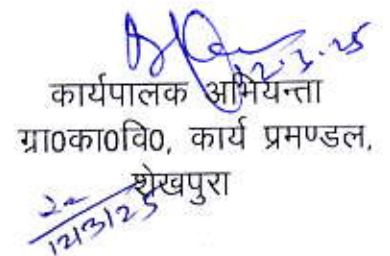 12.3.25
कार्यपालक अभियन्ता
ग्रा0का0वि0, कार्य प्रमण्डल,
शेखपुरा
12/3/25